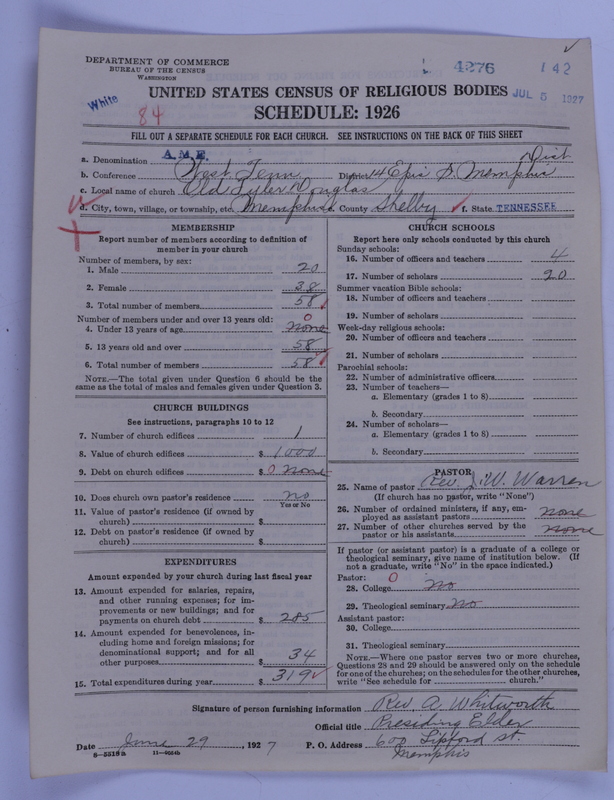 DEPARTMENT OF COMMERCE
BUREAU OF THE CENSUS
WASHINGTON
4276 142
White
84
UNITED STATES CENSUS OF RELIGIOUS BODIES JUL 5 1927
SCHEDULE: 1926
FILL OUT A SEPARATE SCHEDULE FOR EACH CHURCH. SEE INSTRUCTIONS ON THE BACK OF THIS SHEET
a. Denomination A.M.E. Dist
b. Conference West Tenn District 14 Epis S. Memphis
c. Local name of church Old Tyler Douglas
d. City, town, village, or township, etc. Memphis e. County Shelby f. State TENNESSEE
MEMBERSHIP
Report number of members according to definition of
member in your church
Number of members, by sex:
1. Male 20
2. Female 38
3. Total number of members 58
Number of members under and over 13 years old:
4. Under 13 years of age 0 None
5. 13 years old and over 58
6. Total number of members 58
NOTE.—The total given under Question 6 should be
the same as the total of males and females given under Question 3.
CHURCH BUILDINGS
See instructions, paragraphs 10 to 12
7. Number of church edifices 1
8. Value of church edifices $ 1000
9. Debt on church edifices $ 0 None
10. Does church own pastor's residence no
Yes or No
11. Value of pastor's residence (if owned by
church) $
12. Debt on pastor's residence (if owned by
church) $
EXPENDITURES
Amount expended by your church during last fiscal year
13. Amount expended for salaries, repairs,
and other running expenses; for im-
provements or new buildings; and for
payments on church debt $ 285
14. Amount expended for benevolences, in-
cluding home and foreign missions; for
denominational support; and for all
other purposes $ 34
15. Total expenditures during year $ 319
CHURCH SCHOOLS
Report here only schools conducted by this church
Sunday schools:
16. Number of officers and teachers 4
17. Number of scholars 20
Summer vacation Bible schools:
18. Number of officers and teachers
19. Number of scholars
Week-day religious schools:
20. Number of officers and teachers
21. Number of scholars
Parochial schools:
22. Number of administrative officers
23. Number of teachers—
a. Elementary (grades 1 to 8)
b. Secondary
24. Number of scholars—
a. Elementary (grades 1 to 8)
b. Secondary
PASTOR
25. Name of pastor Rev. J. W. Warren
(If church has no pastor, write "None")
26. Number of ordained ministers, if any, em-
ployed as assistant pastors none
27. Number of other churches served by the
pastor or his assistants none
If pastor (or assistant pastor) is a graduate of a college or
theological seminary, give name of institution below. (If
not a graduate, write "No" in the space indicated.)
Pastor: 0
28. College No
29. Theological seminary No
Assistant pastor:
30. College
31. Theological seminary
NOTE.—Where one pastor serves two or more churches,
Questions 28 and 29 should be answered only on the schedule
for one of the churches; on the schedules for the other churches,
write "See schedule for church."
Signature of person furnishing information Rev. A. Whitworth
Official title Presiding Elder
Date June 29, 1927 P. O. Address 600 Lipford St.
Memphis